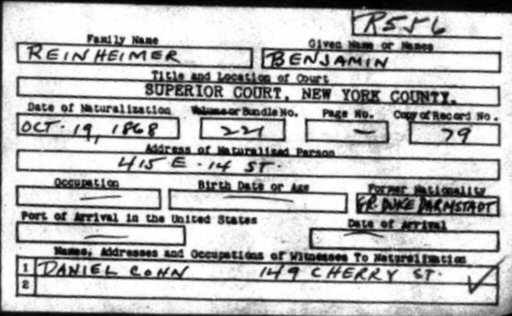 R556
Family Name Given Name or Names
REINHEIMER BENJAMIN
Title and Location of Court
SUPERIOR COURT, NEW YORK COUNTY.
Date of Naturalization Volume or Bundle No. Page No. Copy of Record No.
OCT. 19, 1868 221 — 79
Address of Naturalized Person
415 E. 14 ST.
Occupation Birth Date or Age Former Nationality
— — GR. DUKE DARMSTADT
Port of Arrival in the United States Date of Arrival
— —
Names, Addresses and Occupations of Witnesses To Naturalization
1 DANIEL COHN 149 CHERRY ST. ✓
2